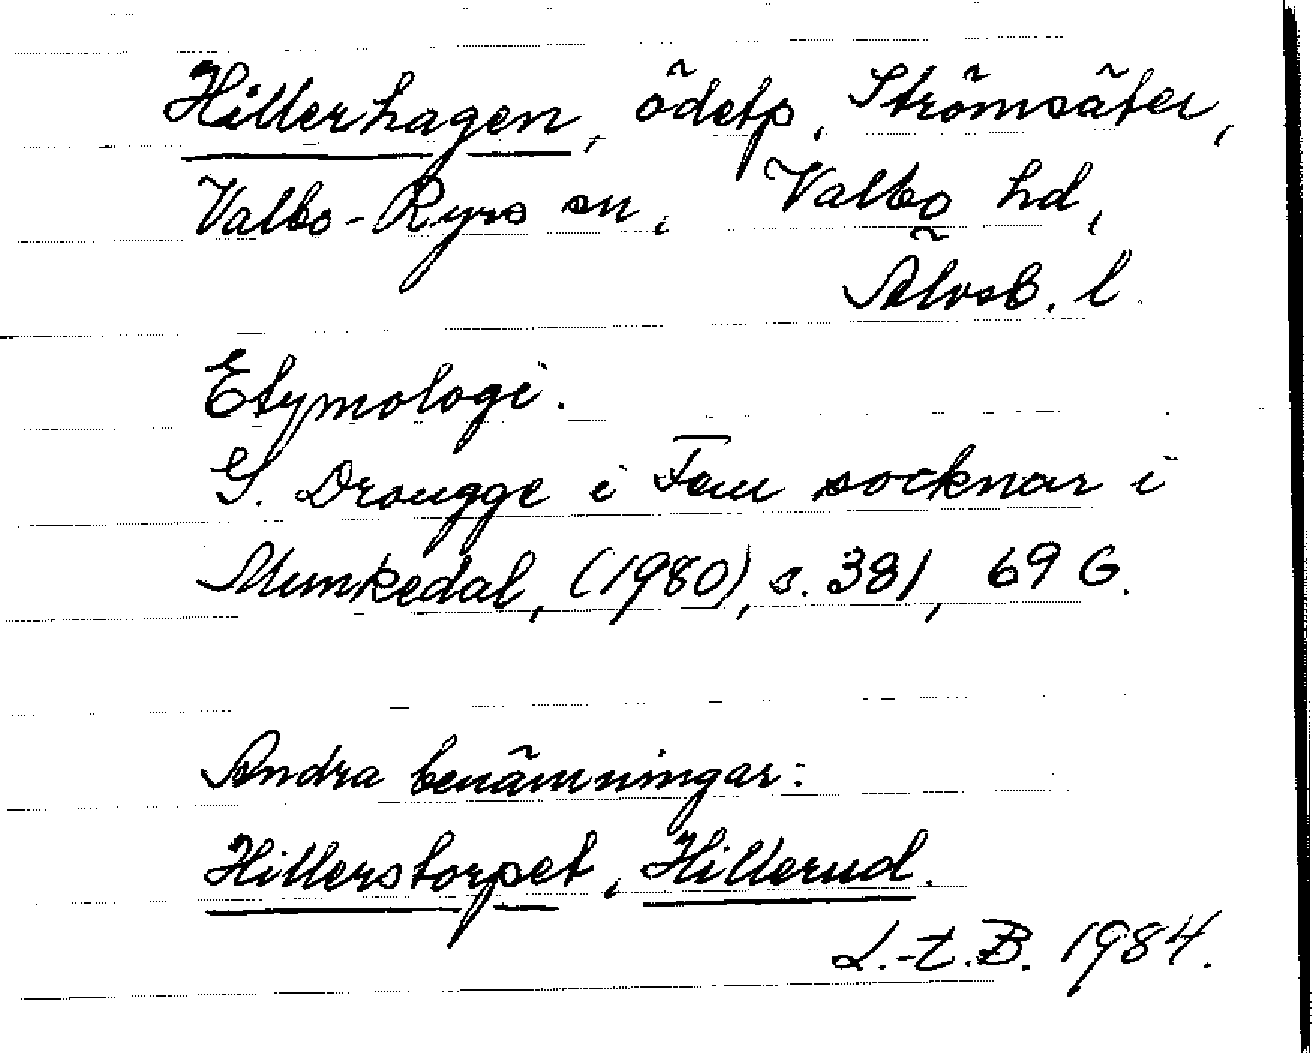 Hillerhagen, ödetp, Strömsäter,
Valbo-Ryrs sn, Valbo hd,
Älvsb. l.
Etymologi.
G. Drougge i Fem socknar i
Munkedal, (1980), s. 381, 69 G.
Andra benämningar:
Hillerstorpet, Hillerud.
L.-t.B. 1984.